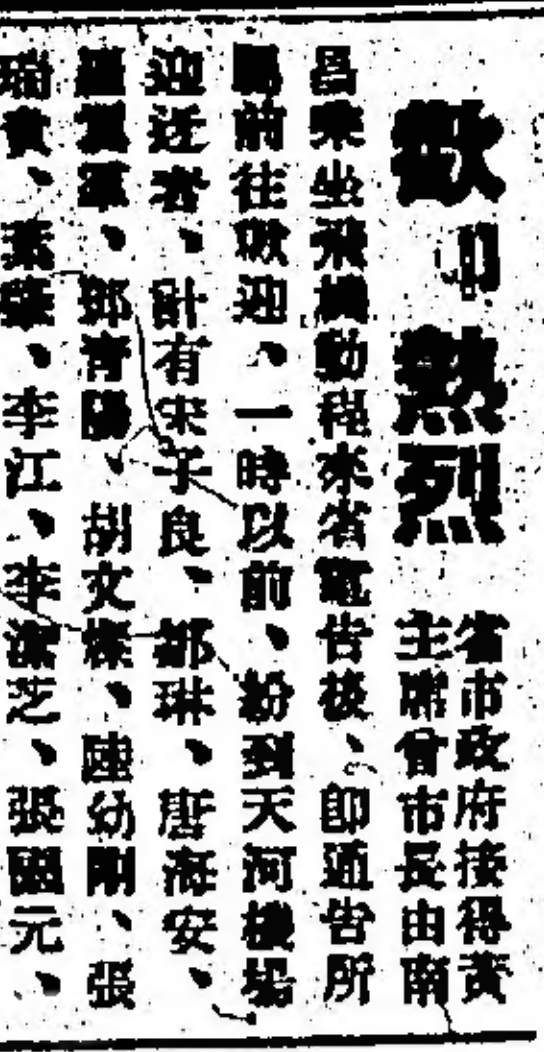 歡印熱烈
省市政府接得黃
主席曾市長由南
昌乘坐飛機動程來省電告後、即通告所
屬前往歡迎、一時以前、紛到天河機場
迎迓者、計有宋子良、鄒琳、唐海安、
鄧青陽、胡文燦、陸幼剛、張
瑞貴、李江、李潔芝、張元、